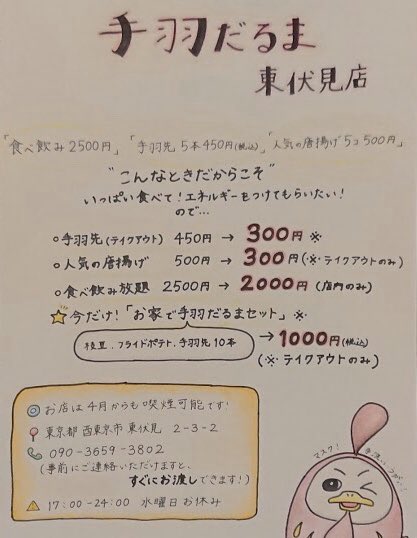 手羽だるま
東伏見店
「食べ飲み2500円」「手羽先5本450円(税込)」「人気の唐揚げ5コ500円」
"こんなときだからこそ"
いっぱい食べて!エネルギーをつけてもらいたい!
ので…
○手羽先(テイクアウト) 450円 → 300円 ※
○人気の唐揚げ 500円 → 300円(※テイクアウトのみ)
○食べ飲み放題 2500円 → 2000円(店内のみ)
☆今だけ!「お家で手羽だるまセット」※
枝豆、フライドポテト、手羽先10本 → 1000円(税込)
(※テイクアウトのみ)
◎お店は4月からも喫煙可能です!
東京都 西東京市 東伏見 2-3-2
090-3659-3802
(事前にご連絡いただけますと、
すぐにお渡しできます!)
17:00-24:00 水曜日お休み
マスク!
手洗い